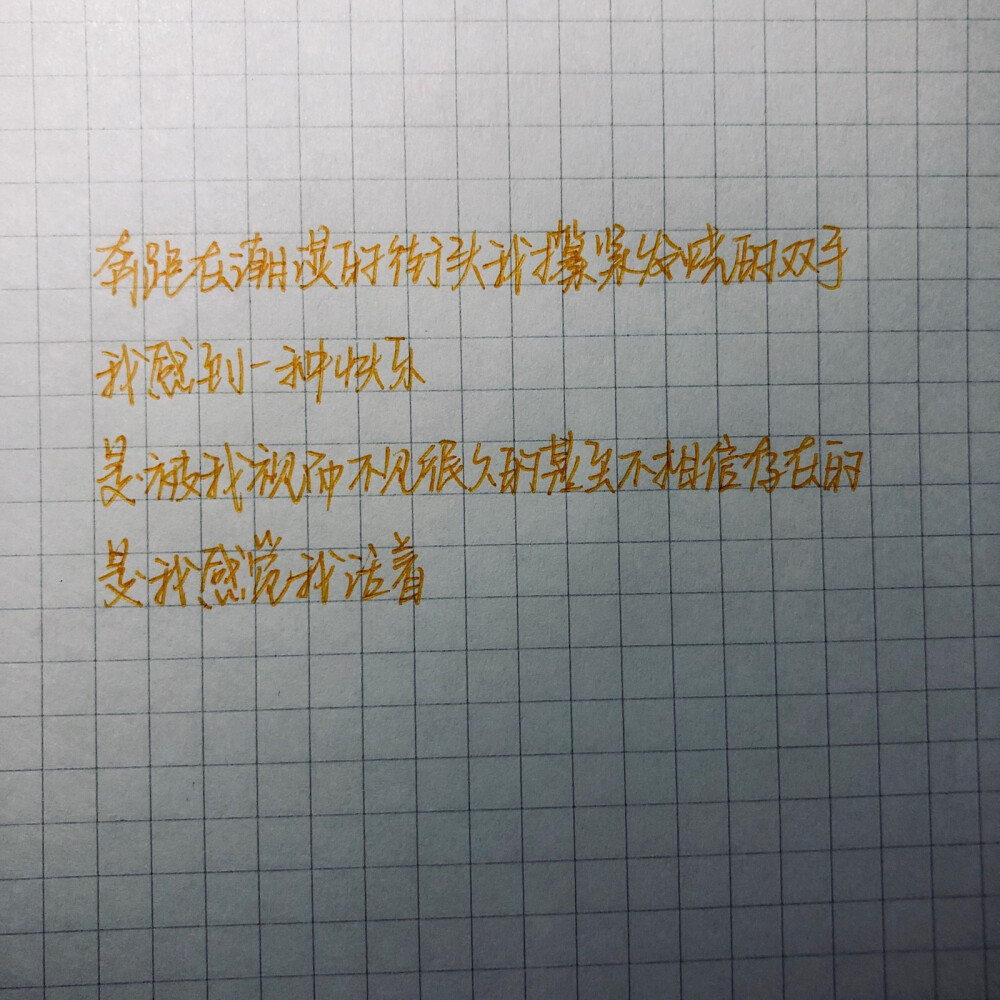 奔跑在潮湿的街头我攥紧发烧的双手
我感到一种快乐
是被我视而不见很久的甚至不相信存在的
是我感觉我活着